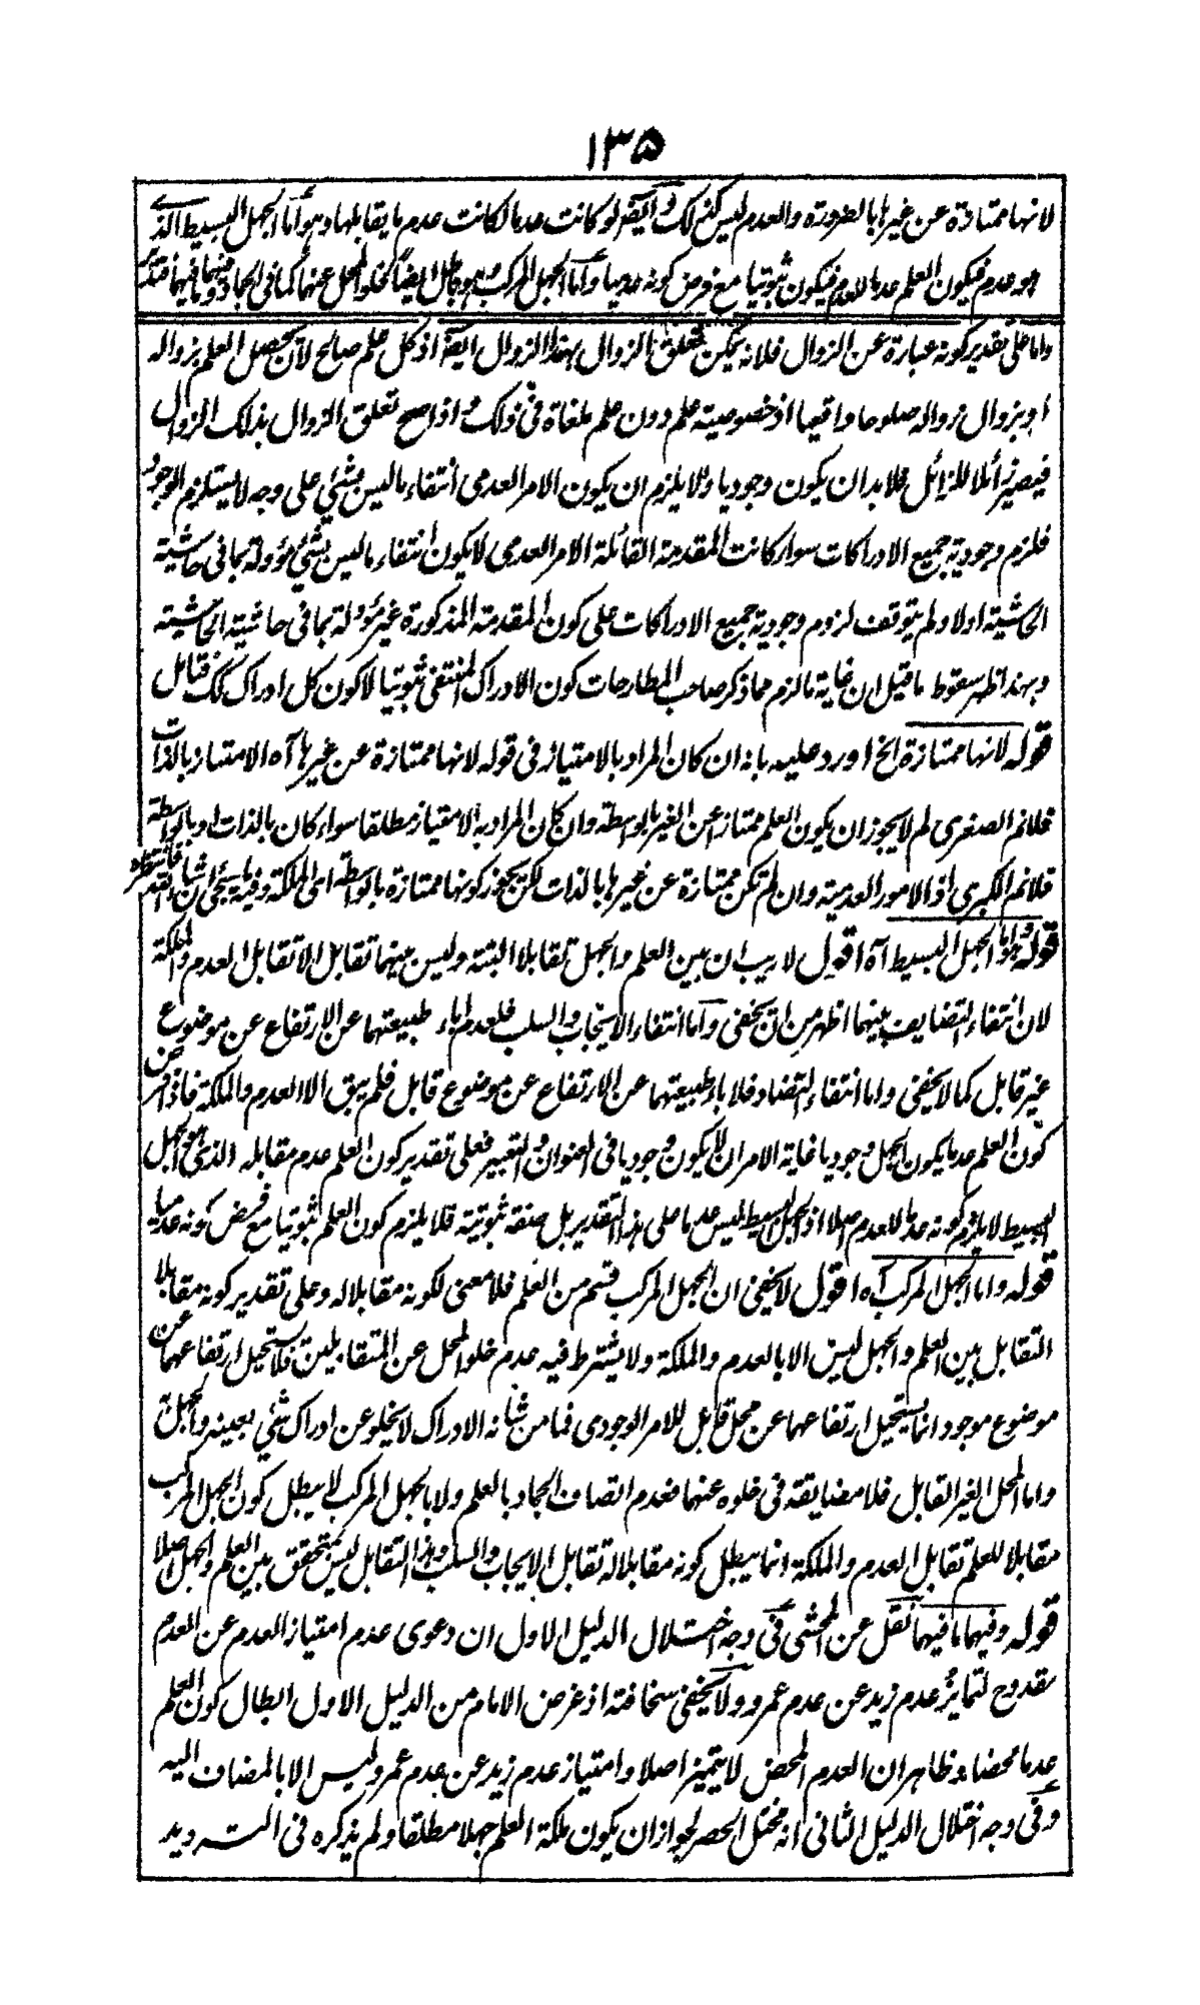 ١٣٥
لانها ممتازة عن غيرها بالضرورة والعدم ليس كذلك وايضا لو كانت عدما لكانت عدم ما يقابلها وهو اما الجهل البسيط الذى
هو عدم فيكون العلم عدما للعدم فيكون ثبوتيا مع فرض كونه عدميا واما الجهل المركب وهو باطل ايضا لخلو المحل عنهما كما فى الجماد وفيهما ما فيهما
واما على تقدير كونه عبارة عن الزوال فلانه يمكن تعلق الزوال بهذا الزوال ايضا اذ كل علم صالح لان يحصل العلم بزواله
او بزوال زواله صلوحا واقعيا اذ خصوصية علم دون علم ملغاة فى ذلك و اذا صح تعلق الزوال بذلك الزوال
فيصير زائلا للزائل فلا بد ان يكون وجوديا ولا يلزم ان يكون الامر العدمى انتفاء ما ليس بشئ على وجه لا يستلزم الوجود
فلزم وجودية جميع الادراكات سواء كانت المقدمة القائلة الامر العدمى لا يكون انتفاء ما ليس بشئ مؤولة بما فى حاشية
الحاشية اولا ولم يتوقف لزوم وجودية جميع الادراكات على كون المقدمة المذكورة غير مؤولة بما فى حاشية الحاشية
وبهذا ظهر سقوط ما قيل ان غاية ما لزم مما ذكر صاحب المطارحات كون الادراك المنتفى ثبوتيا لا كون كل ادراك كذلك فتامل
قوله لانها ممتازة الخ اورد عليه بانه ان كان المراد بالامتياز فى قوله لانها ممتازة عن غيرها آه الامتياز بالذات
فلانم الصغرى لم لا يجوز ان يكون العلم ممتازا عن الغير بالواسطة وان كان المراد به الامتياز مطلقا سواء كان بالذات او بالواسطة
فلانم الكبرى اذ الامور العدمية وان لم تكن ممتازة عن غيرها بالذات لكن يجوز كونها ممتازة بالواسطة اى الملكة وفيه ما سيجئ ان شاء الله فانتظره
قوله وهو اما الجهل البسيط آه اقول لا ريب ان بين العلم والجهل تقابلا البتة وليس بينهما تقابل الا تقابل العدم والملكة
لان انتفاء التضايف بينهما اظهر من ان يخفى واما انتفاء الايجاب والسلب فلعدم اباء طبيعتهما عن الارتفاع عن موضوع
غير قابل كما لا يخفى واما انتفاء التضاد فلا باء طبيعتهما عن الارتفاع عن موضوع قابل فلم يبق الا العدم والملكة فاذا فرض
كون العلم عدما يكون الجهل وجوديا غاية الامر ان لا يكون وجوديا فى العنوان والتعبير فعلى تقدير كون العلم عدم مقابله الذى هو الجهل
البسيط لا يلزم كونه عدما للعدم اصلا اذ الجهل البسيط ليس عدما على هذا التقدير بل صفة ثبوتية فلا يلزم كون العلم ثبوتيا مع فرض كونه عدميا
قوله واما الجهل المركب آه اقول لا يخفى ان الجهل المركب قسم من العلم فلا معنى لكونه مقابلا له وعلى تقدير كونه مقابلا
التقابل بين العلم والجهل ليس الا بالعدم والملكة ولا يشترط فيه عدم خلو المحل عن المتقابلين فلا يستحيل ارتفاعهما عن
موضوع موجود انما يستحيل ارتفاعهما عن محل قابل للامر الوجودى فما من شانه الادراك لا يخلو عن ادراك شئ بعينه والجهل به
واما المحل الغير القابل فلا مضايقة فى خلوه عنهما فعدم اتصاف الجماد بالعلم ولا بالجهل المركب لا يبطل كون الجهل المركب
مقابلا للعلم تقابل العدم والملكة انما يبطل كونه مقابلا له تقابل الايجاب والسلب وهذا التقابل ليس بمتحقق بين العلم والجهل اصلا
قوله وفيهما ما فيهما نقل عن المحشى فى وجه اختلال الدليل الاول ان دعوى عدم امتياز العدم عن العدم
مقدوح لتمايز عدم زيد عن عدم عمرو ولا يخفى سخافته اذ غرض الامام من الدليل الاول ابطال كون العلم
عدما محضا وظاهر ان العدم المحض لا يتميز اصلا وامتياز عدم زيد عن عدم عمرو ليس الا بالمضاف اليه
وفى وجه اختلال الدليل الثانى انه مختل الحصر لجواز ان يكون ملكة العلم جهلا مطلقا ولم يذكره فى الترديد